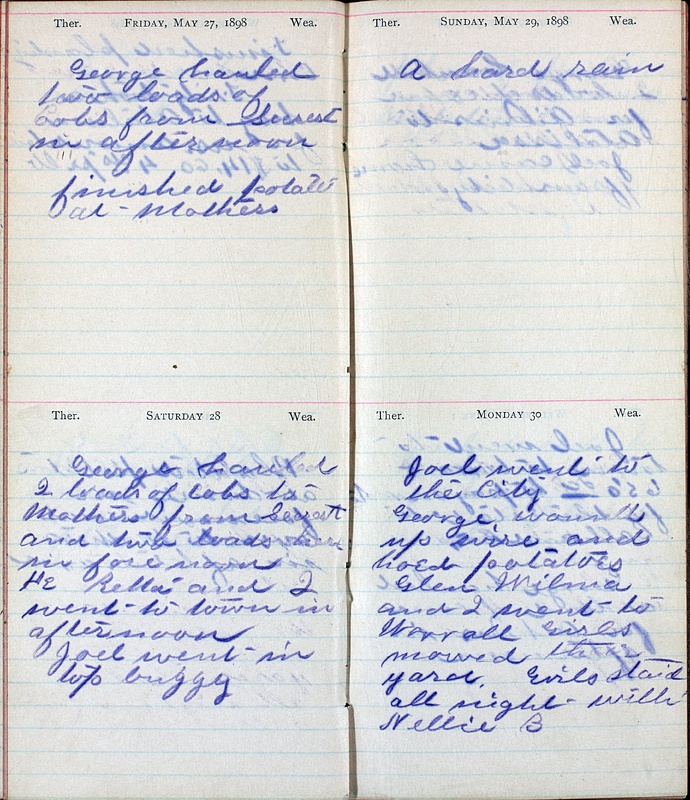 Ther. FRIDAY, MAY 27, 1898 Wea.
George hauled
two loads of
cobs from
in afternoon
finished potatoe
at Mothers
Ther. SATURDAY 28 Wea.
George hauled
2 loads of cobs to
Mothers from
and two loads
in fore noon
He Retta and I
went to town in
afternoon
Joel went in
top buggy
Ther. SUNDAY, MAY 29, 1898 Wea.
A hard rain
Ther. MONDAY 30 Wea.
Joel went to
the City
George wound
up wire and
hoed potatoes
Glen Wilma
and I went to
Worrall Girls
mowed
yard. Girls staid
all night with
Nellie B